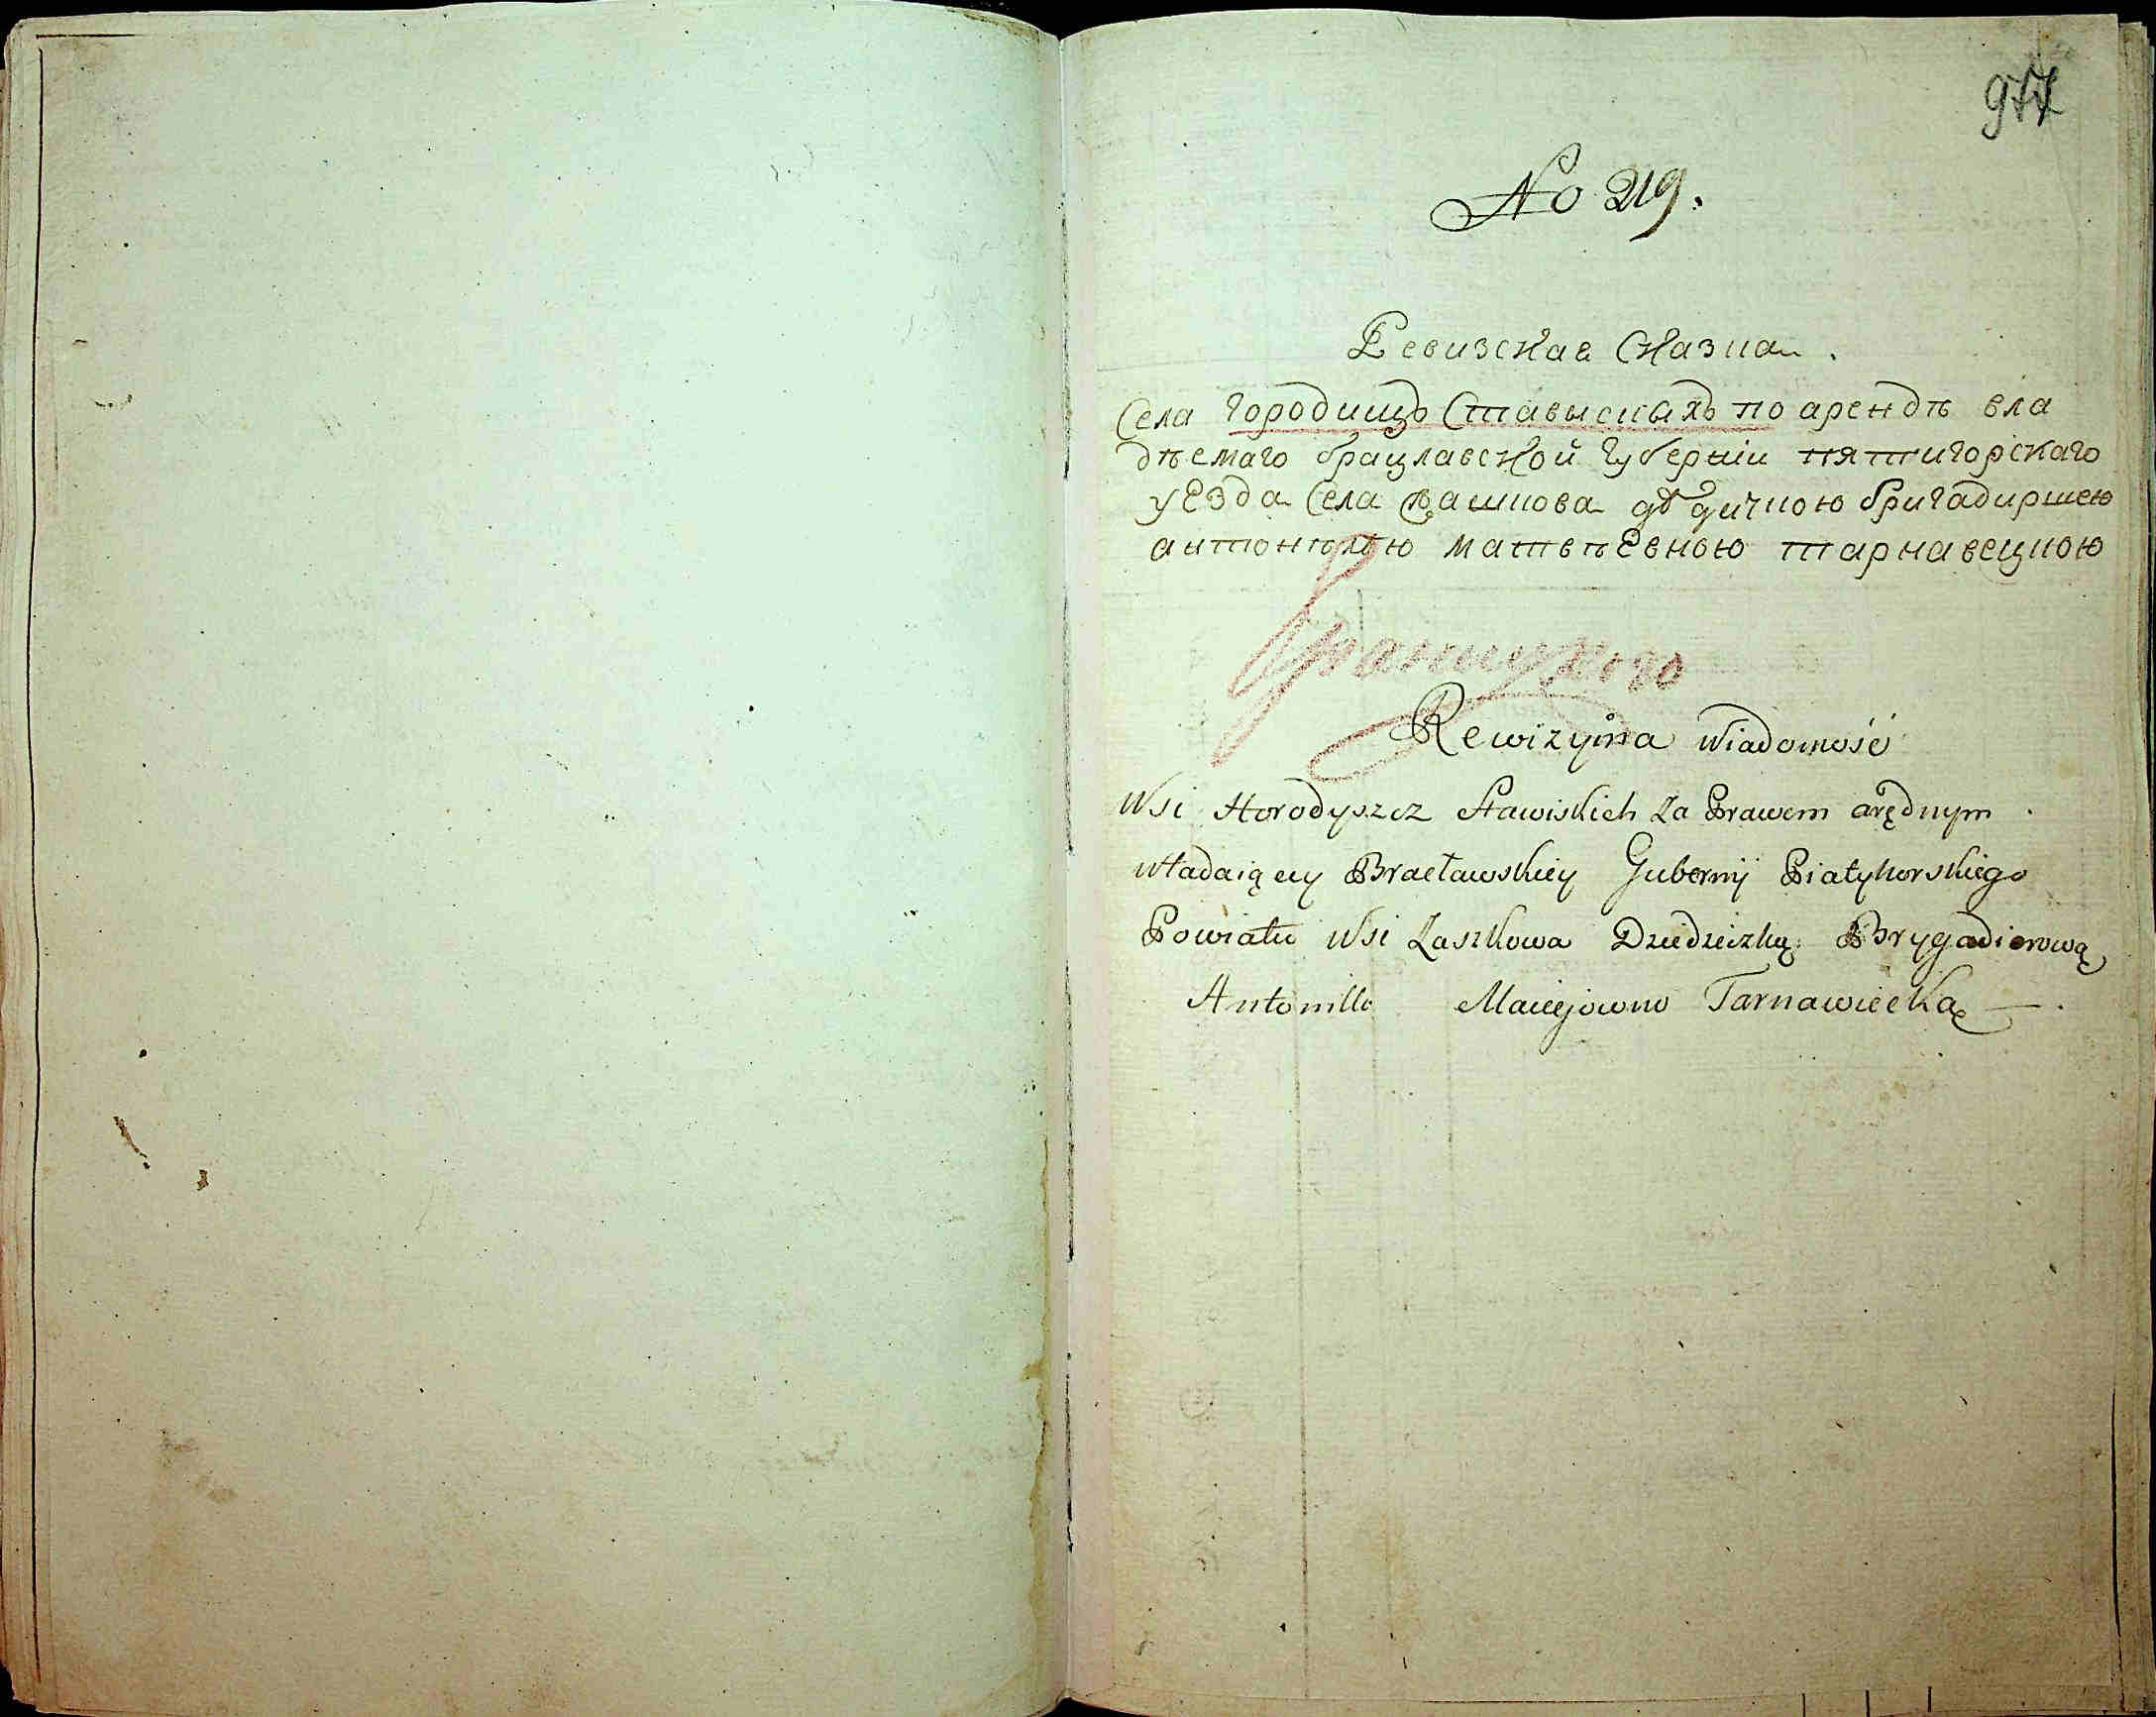 977
No 219.
Ревизская Сказка.
Села Городищъ Ставыскахъ по арендѣ вла
дѣемаго брацлавской Губернїи пятигорскаго
уезда Села Жашкова дѣдичкою бригадиршею
антонѣлею матвѣевною тарнавецкою
Rewizyina Wiadomość
Wsi Horodyszcz Stawiskich Za Prawem arędnym
władaiący Bracławskiey Gubernij Piatyhorskiego
Powiatu Wsi Zaszkowa Dziedziczką Brygadierową
Antonillo Maciejowno Tarnawiecką